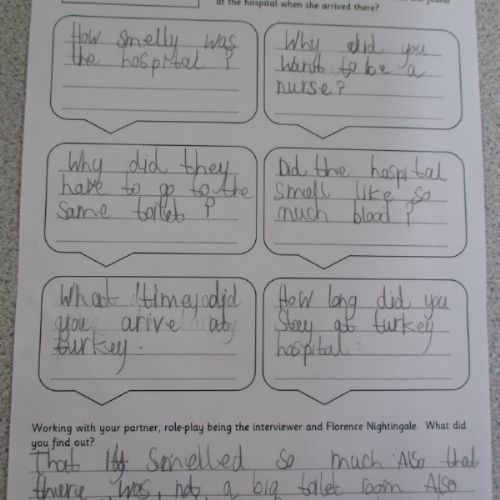 at the hospital when she arrived there?
How smelly was
the hospital?
Why did you
want to be a
nurse?
Why did they
have to go to the
same toilet?
Did the hospital
smell like so
much blood?
What time did
you arive at
turkey.
How long did you
stay at turkey
hospital.
Working with your partner, role-play being the interviewer and Florence Nightingale. What did
you find out?
That it smelled so much Also that
was not a big toilet room Also